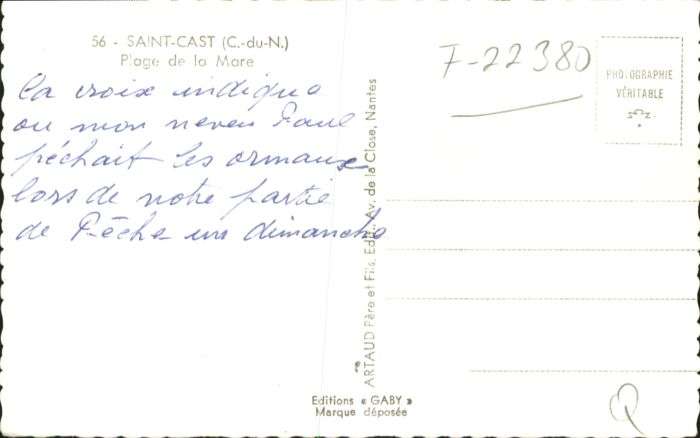 56 - SAINT-CAST (C.-du-N.)
Plage de la Mare
La croix indique
ou mon neveu Paul
pêchait les ormeaux
lors de notre partie
de Pêche un dimanche
F-22380
PHOTOGRAPHIE
VÉRITABLE
ARTAUD Père et Fils, Edit., Av. de la Close, Nantes
Editions « GABY »
Marque déposée
Q